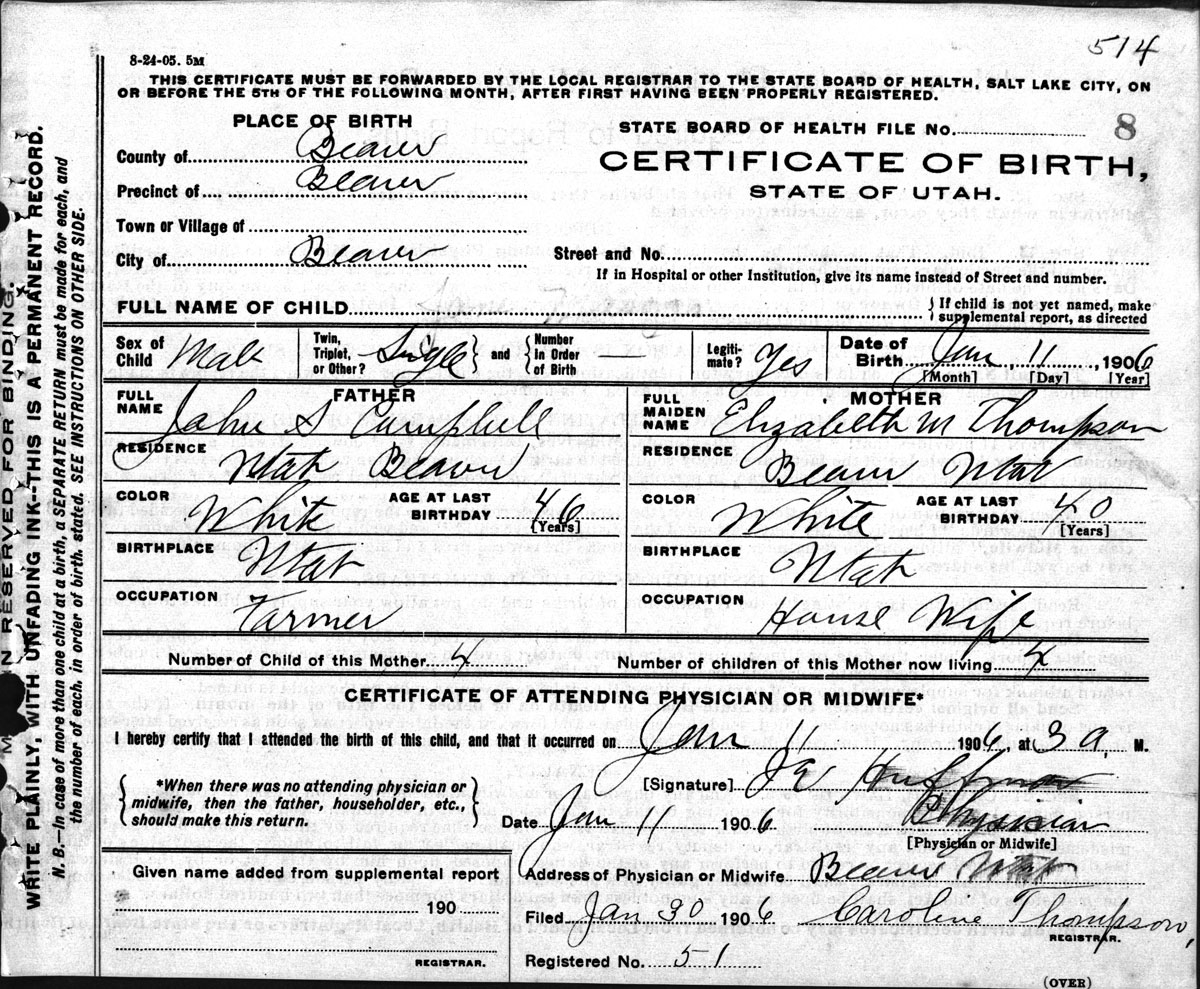 514
8-24-05. 5M
THIS CERTIFICATE MUST BE FORWARDED BY THE LOCAL REGISTRAR TO THE STATE BOARD OF HEALTH, SALT LAKE CITY, ON
OR BEFORE THE 5TH OF THE FOLLOWING MONTH, AFTER FIRST HAVING BEEN PROPERLY REGISTERED.
PLACE OF BIRTH
County of Beaver
Precinct of Beaver
Town or Village of
City of Beaver
STATE BOARD OF HEALTH FILE No. 8
CERTIFICATE OF BIRTH,
STATE OF UTAH.
Street and No.
If in Hospital or other Institution, give its name instead of Street and number.
FULL NAME OF CHILD
{ If child is not yet named, make
supplemental report, as directed
Sex of Child Male
Twin, Triplet, or Other? Single and { Number in Order of Birth
Legitimate? Yes
Date of Birth Jan 11, 1906
[Month] [Day] [Year]
FATHER
FULL NAME John S Campbell
RESIDENCE Utah Beaver
COLOR White AGE AT LAST BIRTHDAY 46 [Years]
BIRTHPLACE Utah
OCCUPATION Farmer
MOTHER
FULL MAIDEN NAME Elizabeth M Thompson
RESIDENCE Beaver Utah
COLOR White AGE AT LAST BIRTHDAY 40 [Years]
BIRTHPLACE Utah
OCCUPATION House Wife
Number of Child of this Mother 4 Number of children of this Mother now living 4
CERTIFICATE OF ATTENDING PHYSICIAN OR MIDWIFE*
I hereby certify that I attended the birth of this child, and that it occurred on Jan 11 1906, at 3 a, M.
{ *When there was no attending physician or
midwife, then the father, householder, etc.,
should make this return. }
[Signature]
Date Jan 11 1906 Physician
[Physician or Midwife]
Address of Physician or Midwife Beaver Utah
Given name added from supplemental report
190
REGISTRAR.
Filed Jan 30 1906 Caroline Thompson,
REGISTRAR.
Registered No. 51
(OVER)
RESERVED FOR BINDING.
WRITE PLAINLY, WITH UNFADING INK--THIS IS A PERMANENT RECORD.
N. B.--In case of more than one child at a birth, a SEPARATE RETURN must be made for each, and
the number of each, in order of birth, stated. SEE INSTRUCTIONS ON OTHER SIDE.